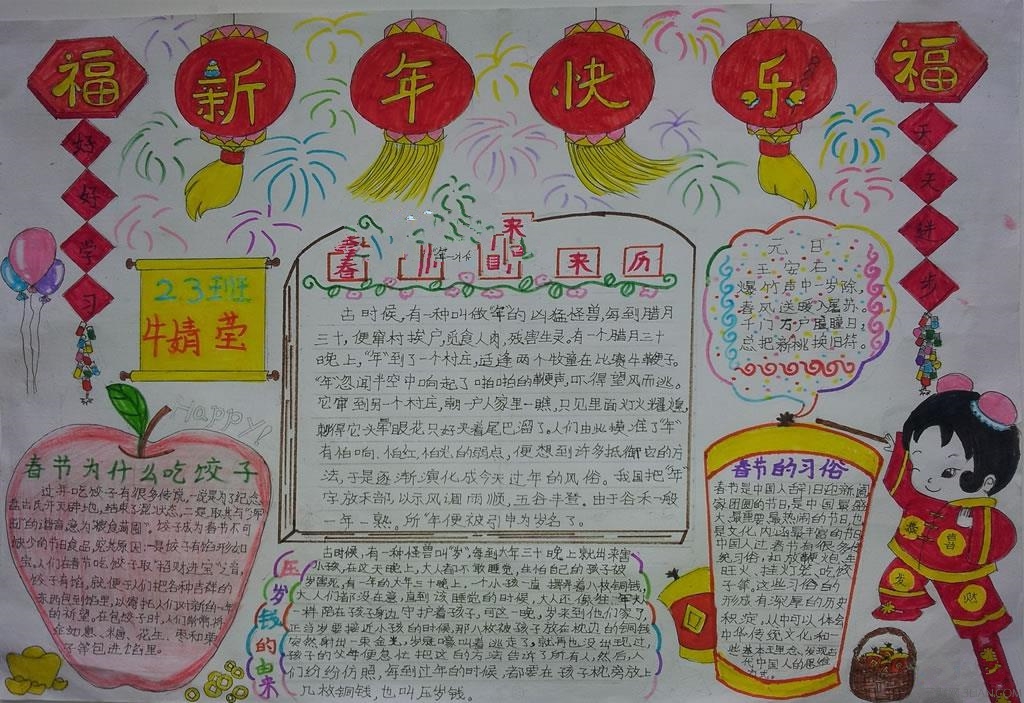 福
新年快乐
福
好好学习
天天进步
2.3班
牛婧莹
Happy!
春
来
来历
古时候,有一种叫做"年"的凶猛怪兽,每到腊月
三十,便窜村挨户,觅食人肉,残害生灵。有一个腊月三十
晚上,"年"到了一个村庄,适逢两个牧童在比赛牛鞭子。
"年"忽闻半空中响起了啪啪的鞭声,吓得望风而逃。
它窜到另一个村庄,朝一户人家里一瞧,只见里面灯火辉煌,
刺得它头晕眼花只好夹着尾巴溜了。人们由此摸准了"年"
有怕响、怕红、怕光的弱点,便想到许多抵御它的方
法,于是逐渐演化成今天过年的风俗。我国把"年"
字放禾部,以示风调雨顺,五谷丰登。由于谷禾一般
一年一熟。所"年"便被引申为岁名了。
元日
王安石
爆竹声中一岁除,
春风送暖入屠苏。
千门万户曈曈日,
总把新桃换旧符。
春节为什么吃饺子
过年吃饺子有很多传说,一说是为了纪念
盘古氏开天辟地,结束了混状态,二是取其与"浑
囤"的谐音,意为"粮食满囤"。饺子成为春节不可
缺少的节日食品,究其原因:一是饺子有馅形状如
宝,人们在春节吃饺子取"招财进宝"之音,
饺子有馅,就便于人们把各种吉祥的
东西包到馅里,以寄托人们对新的一年
的祈望。在包饺子时,人们常常将
金如意、糖、花生、枣和栗
子等包进馅里。
压岁钱的由来
古时候,有一种怪兽叫"岁",每到大年三十晚上就出来害
小孩,在这天晚上,大人都不敢睡觉,在怕自己的孩子被
岁害死,有一年的大年三十晚上,一个小孩一直摆弄着八枚铜钱,
大人们都没在意,直到该睡觉的时候,大人还像往年
一样陪在孩子身边守护着孩子,可这一晚,岁来到他们家了,
正当岁要接近小孩的时候,那八枚被孩子放在枕边的铜钱
突然射出一束金光,岁嚎嚎叫着逃走了,就再也没出现过,
孩子的父母便急忙把这自的方法告诉了所有人,然后人
们纷纷仿照,每到过年的时候,都要在孩子枕旁放上
几枚铜钱,也叫压岁钱。
春节的习俗
春节是中国人合
家团圆的节日,是中国最盛
大最重要最热闹的节日,也
是文化内涵最丰富的节日
中国人过春节有很多传
统习俗,如放鞭炮、
旺火、挂灯笼、吃饺
子等。这些习俗的
形成有深厚的历史
积淀,从中可以体会
中华传统文化和一
些基本理念,发现古
代中国人的思维
方式。
恭喜
发财